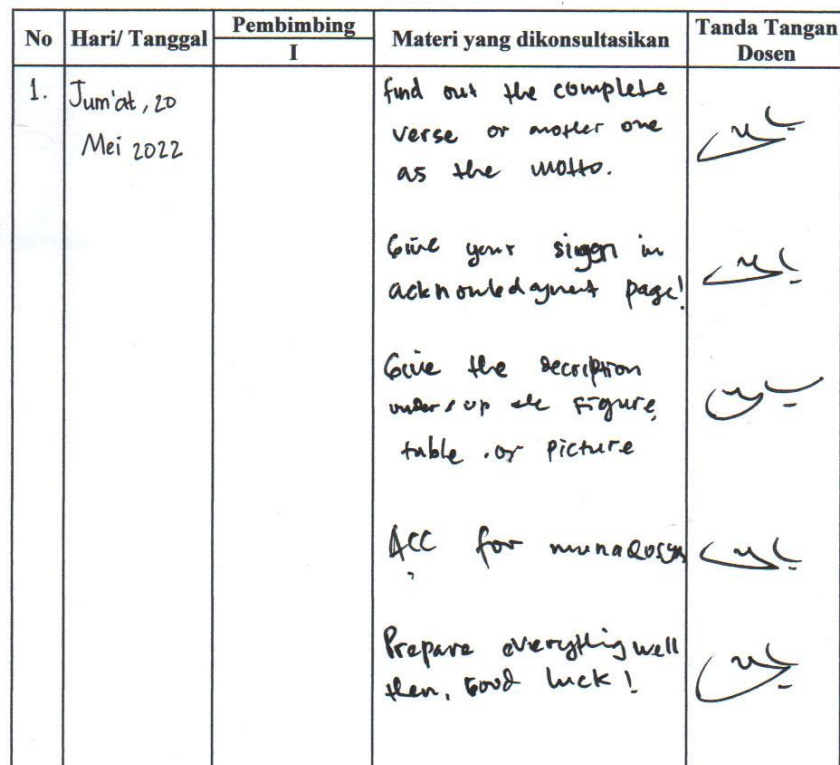 No
Hari/ Tanggal
Pembimbing
I
Materi yang dikonsultasikan
Tanda Tangan
Dosen
1.
Jum'at, 20
Mei 2022
find out the complete
verse or another one
as the motto.
Give your sigen in
acknowledgment page!
Give the decription
under / up the Figure,
table, or picture
ACC for munaqosya
Prepare everything well
then, Good luck!